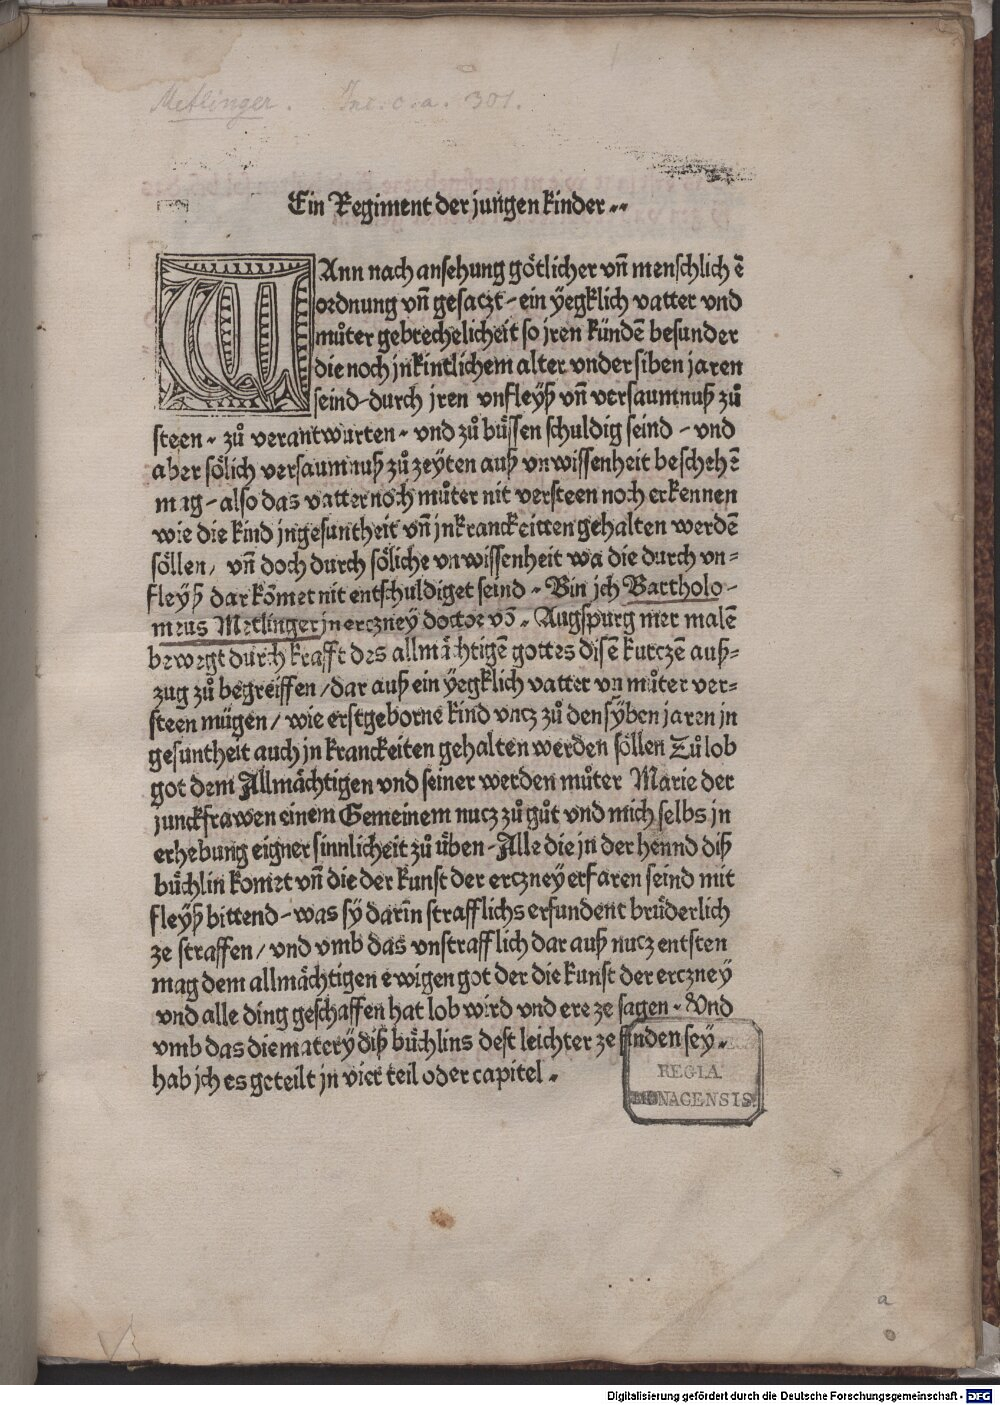 Metlinger. Inc. c. a. 301.
Ein Regiment der jungen kinder..
WAnn nach ansehung götlicher vñ menschlich ē
ordnung vñ gesaczt - ein ÿegklich vatter vnd
můter gebrechelicheit so jren kündē besunder
die noch jn kintlichem alter vnder siben jaren
seind - durch jren vnfleÿß vñ versaumnuß zů
steen - zů verantwurten - vnd zů bůssen schuldig seind - vnd
aber sölich versaumnuß zů zeÿten auß vnwissenheit beschehē
mag - also das vatter noch můter nit versteen noch erkennen
wie die kind jn gesuntheit vñ jn kranckeitten gehalten werdē
söllen / vñ doch durch söliche vnwissenheit wa die durch vn=
fleÿß dar kōmet nit entschuldiget seind - Bin jch Bartholo-
meus Metlinger jn erczney doctor vō - Augspurg mer malē
bewegt durch krafft des allmächtigē gottes disē kurczē auß=
zug zů begreiffen / dar auß ein ÿegklich vatter vñ můter ver=
steen mügen / wie erstgeborne kind vncz zů den sÿben jaren jn
gesuntheit auch jn kranckeiten gehalten werden söllen Zů lob
got dem Allmächtigen vnd seiner werden můter Marie der
junckfrawen einem Gemeinem nucz zů gůt vnd mich selbs jn
erhebung eigner sinnlicheit zů üben - Alle die jn der hennd diß
büchlin komet vñ die der kunst der erczney erfaren seind mit
fleÿß bittend - was sÿ darīn strafflichs erfundent brüderlich
ze straffen / vnd vmb das vnstrafflich dar auß nucz entsten
mag dem allmächtigen ewigen got der die kunst der erczneÿ
vnd alle ding geschaffen hat lob wird vnd ere ze sagen - Vnd
vmb das die materÿ diß büchlins dest leichter ze finden sey.
hab jch es geteilt jn vier teil oder capitel.
REGIA
MONACENSIS
a
Digitalisierung gefördert durch die Deutsche Forschungsgemeinschaft - DFG